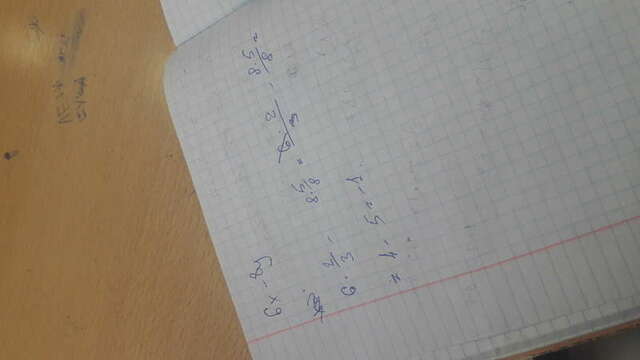 6x - 8y
6 · 2/3 - 8·5/8 = 6·2/3 - 8·5/8 =
= 4 - 5 = -1.